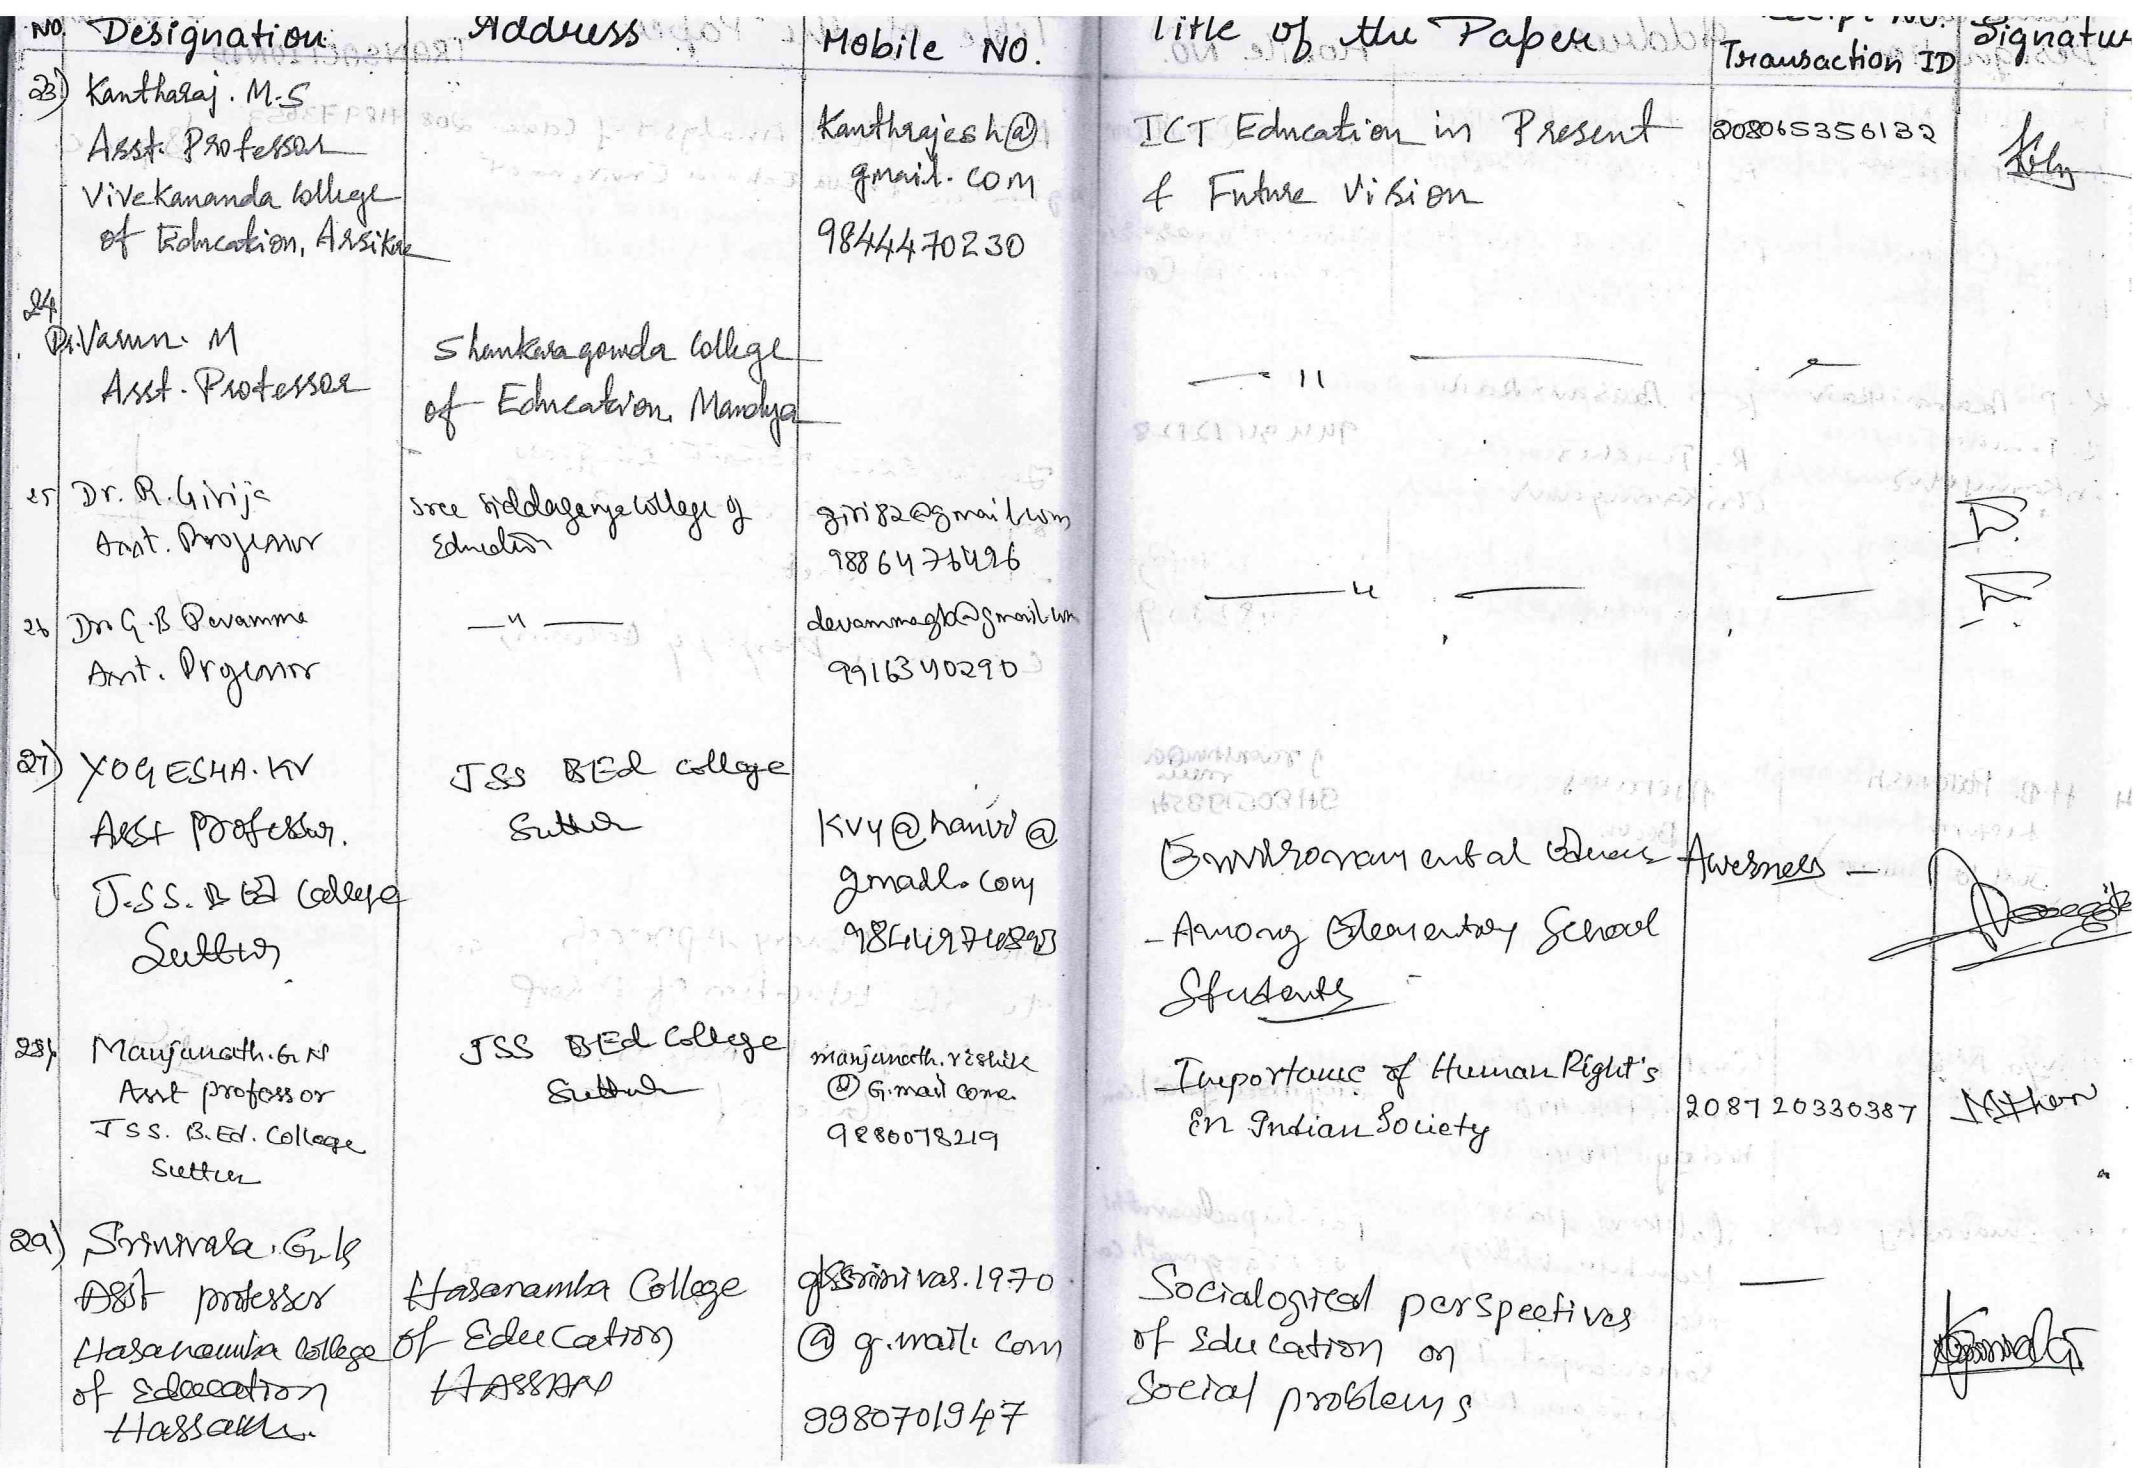 NO. Designation Address Mobile NO. Title of the Paper Transaction ID Signatur
23) Kantharaj. M.S
Asst. Professor
Vivekananda College
of Education, Arsikere
Kanthrajesh@
gmail.com
9844470230
ICT Education in Present
& Future Vision
208065356132
24
Dr. Varun. M
Asst. Professor
Shankaragowda College
of Education, Mandya
— 11
25 Dr. R. Girija
Asst. Professor
Sree Siddaganga College of
Education
giri82@gmail.com
9886476426
26 Dr. G.B Devamma
Asst. Professor
—"—
devammagb@gmail.com
9916340290
— " — —
27) YOGESHA. KV
Asst Professor.
J.S.S. B Ed College
Suttur
JSS BEd College
Suttur
gmail.com
Environamental Awerness —
- Among Elementary School
Students -
28) Manjunath. G. N
Asst professor
JSS. B.Ed. College
Suttur
JSS BEd College
Suttur
manjunath.rishik
@ G.mail com.
9880078219
Importance of Human Right's
In Indian Society
208720330387
29) Srinivasa. G.K
Asst professer
Hasanamba College
of Education
Hassan.
Hasanamba College
of Education
HASSAN
gksrinivas.1970
@ g.mail. com
9980701947
Socialogical perspectives
of Education on
Social problems
—